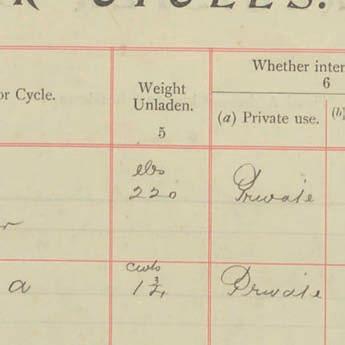 R CYCLES.
Whether inter
Weight
Unladen.
6
or Cycle.
(a) Private use.
(b)
5
lbs
220
Private
r
cwts
a
1 3/4
Private